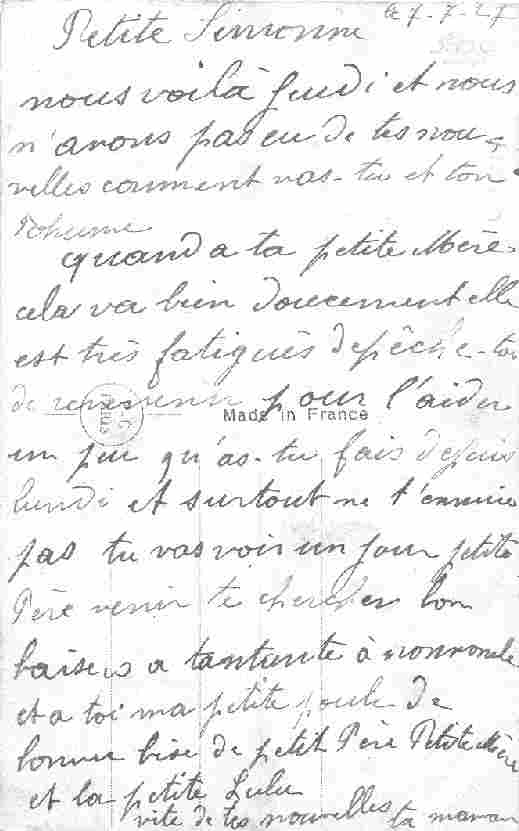 le 7-7-27
Petite Simonne
nous voilà Jeudi et nous
n'avons pas eu de tes nou-
velles comment vas-tu et ton
Rhume
quand a ta petite Mère
cela va bien doucement elle
est très fatiguès depêche-toi
de revenir pour l'aider
Made in France
un peu qu'as-tu fais depuis
lundi et surtout ne t'ennuie
pas tu vas voir un jour petite
Père venir te chercher bon
baisers a tantante à
et a toi ma petite poule de
bonne bise de petit Père Petite Mère
et la petite Lulu
vite de tes nouvelles ta maman